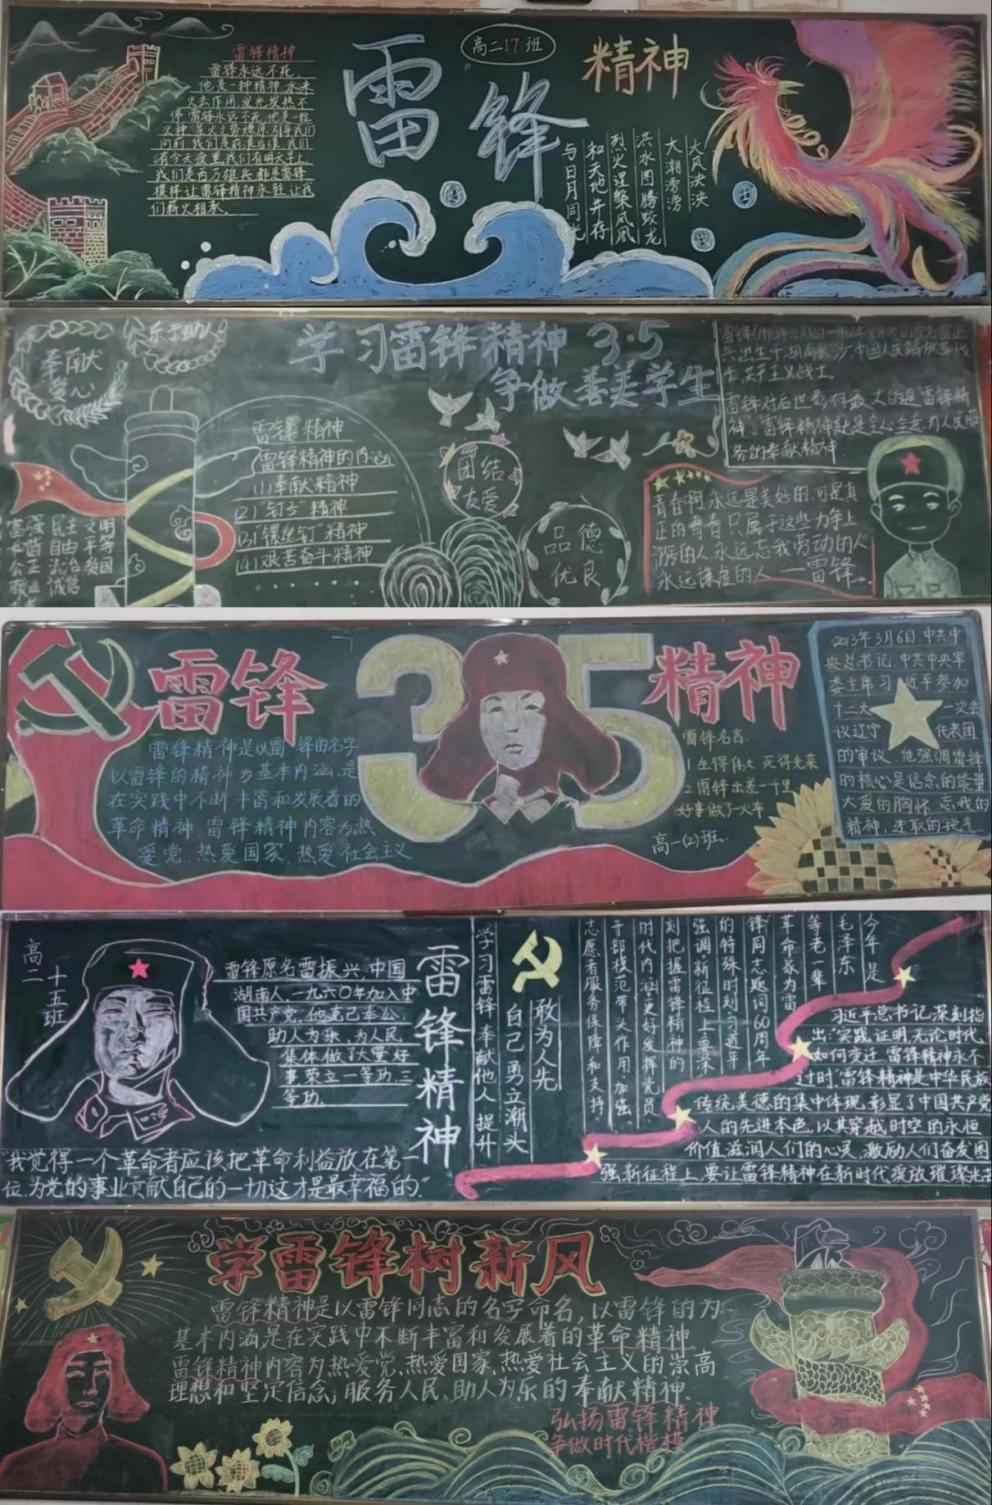 高二17班
雷锋
精神
雷锋精神
雷锋永远不死,
他是一种精神,永来
火去作用发光发热不
停雷锋永远不死,他是一枚
火种
向前,我们是前浪后浪,我们
有今天夜里我们有明天早上
我们是百万雄兵都是雷锋
模样让雷锋精神永驻让我
们薪火相承。
大风泱泱
大潮滂滂
洪水图腾蛟龙
烈火涅槃凤凰
和天地并存
与日月同光
学习雷锋精神 3·5
争做善美学生
奉献
爱心
乐于助人
雷锋精神
雷锋精神的内涵
(1)奉献精神
(2)"钉子"精神
(3)"螺丝钉"精神
(4)艰苦奋斗精神
富强 民主 文明
自由 平等
公正 法治 爱国
诚信
团结
友爱
品德
优良
共产主义战士
雷锋对后世影响最大的是"雷锋精
神",雷锋精神就是全心全意为人民服
务的奉献精神
青春啊,永远是美好的,可是真
正的青春,只属于这些力争上
游的人,永远忘我劳动的人
永远谦虚的人——雷锋
雷锋
35
精神
雷锋精神是以雷锋的名字
以雷锋的精神为基本内涵,是
在实践中不断丰富和发展者的
革命精神,雷锋精神内容为热
爱党、热爱国家、热爱社会主义
雷锋名言:
1.生得伟大 死得光荣
2.雷锋出差一千里
好事做了一火车
高一(2)班
2013年3月6日,中共中
央总书记、中共中央军
委主席习近平参加
十二大一次会
议辽宁代表团
的审议,他强调雷锋
的核心是信念的能量
大爱的胸怀、忘我的
精神,进取的锐气
高二十五班
雷锋原名雷振兴,中国
湖南人,一九六〇年加入中
国共产党,他克己奉公,
助人为乐,为人民,
集体做了大量好
事荣立一等功,三
等功.
"我觉得一个革命者应该把革命利益放在第一
位,为党的事业贡献自己的一切这才是最幸福的."
雷锋精神
学习雷锋 奉献他人 提升
自己 勇立潮头
敢为人先
今年是
毛泽东
等老一辈
革命家为雷
锋同志题词60周年
的特殊时刻,习近平
强调,新征程上,要深
刻把握雷锋精神的
时代内涵,更好发挥党员
干部模范带头作用,加强
志愿者服务保障和支持
习近平总书记深刻指
出:"实践证明,无论时代
如何变迁,雷锋精神永不
过时,"雷锋精神是中华民族
传统美德的集中体现,彰显了中国共产党
人的先进本色,以其穿越时空的永恒
价值,滋润人们的心灵,激励人们奋发图
强,新征程上,要让雷锋精神在新时代绽放璀璨光芒
学雷锋树新风
雷锋精神是以雷锋同志的名字命名,以雷锋的为
基本内涵是在实践中不断丰富和发展着的革命精神
雷锋精神内容为热爱党、热爱国家、热爱社会主义的崇高
理想和坚定信念,服务人民、助人为乐的奉献精神。
弘扬雷锋精神
争做时代楷模